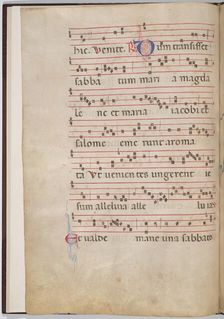 hic. Venite. R Dum transisset
sabba tum mari a magda
le ne et maria iacobi et
salome eme runt aroma
ta Ut venientes ungerent ie
sum alleluia alle luia
Et valde mane una sabbato